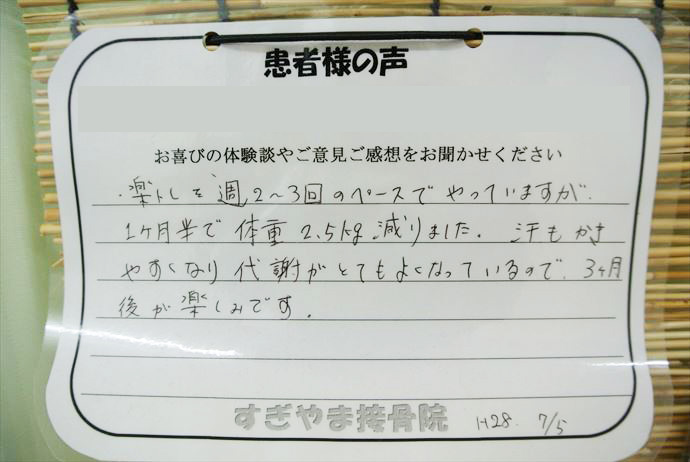 患者様の声
お喜びの体験談やご意見ご感想をお聞かせください
・楽トレを週2〜3回のペースでやっていますが、
1ヶ月半で体重2.5kg減りました。汗もかき
やすくなり代謝がとてもよくなっているので、3ヶ月
後が楽しみです。
すぎやま接骨院 H28. 7/5